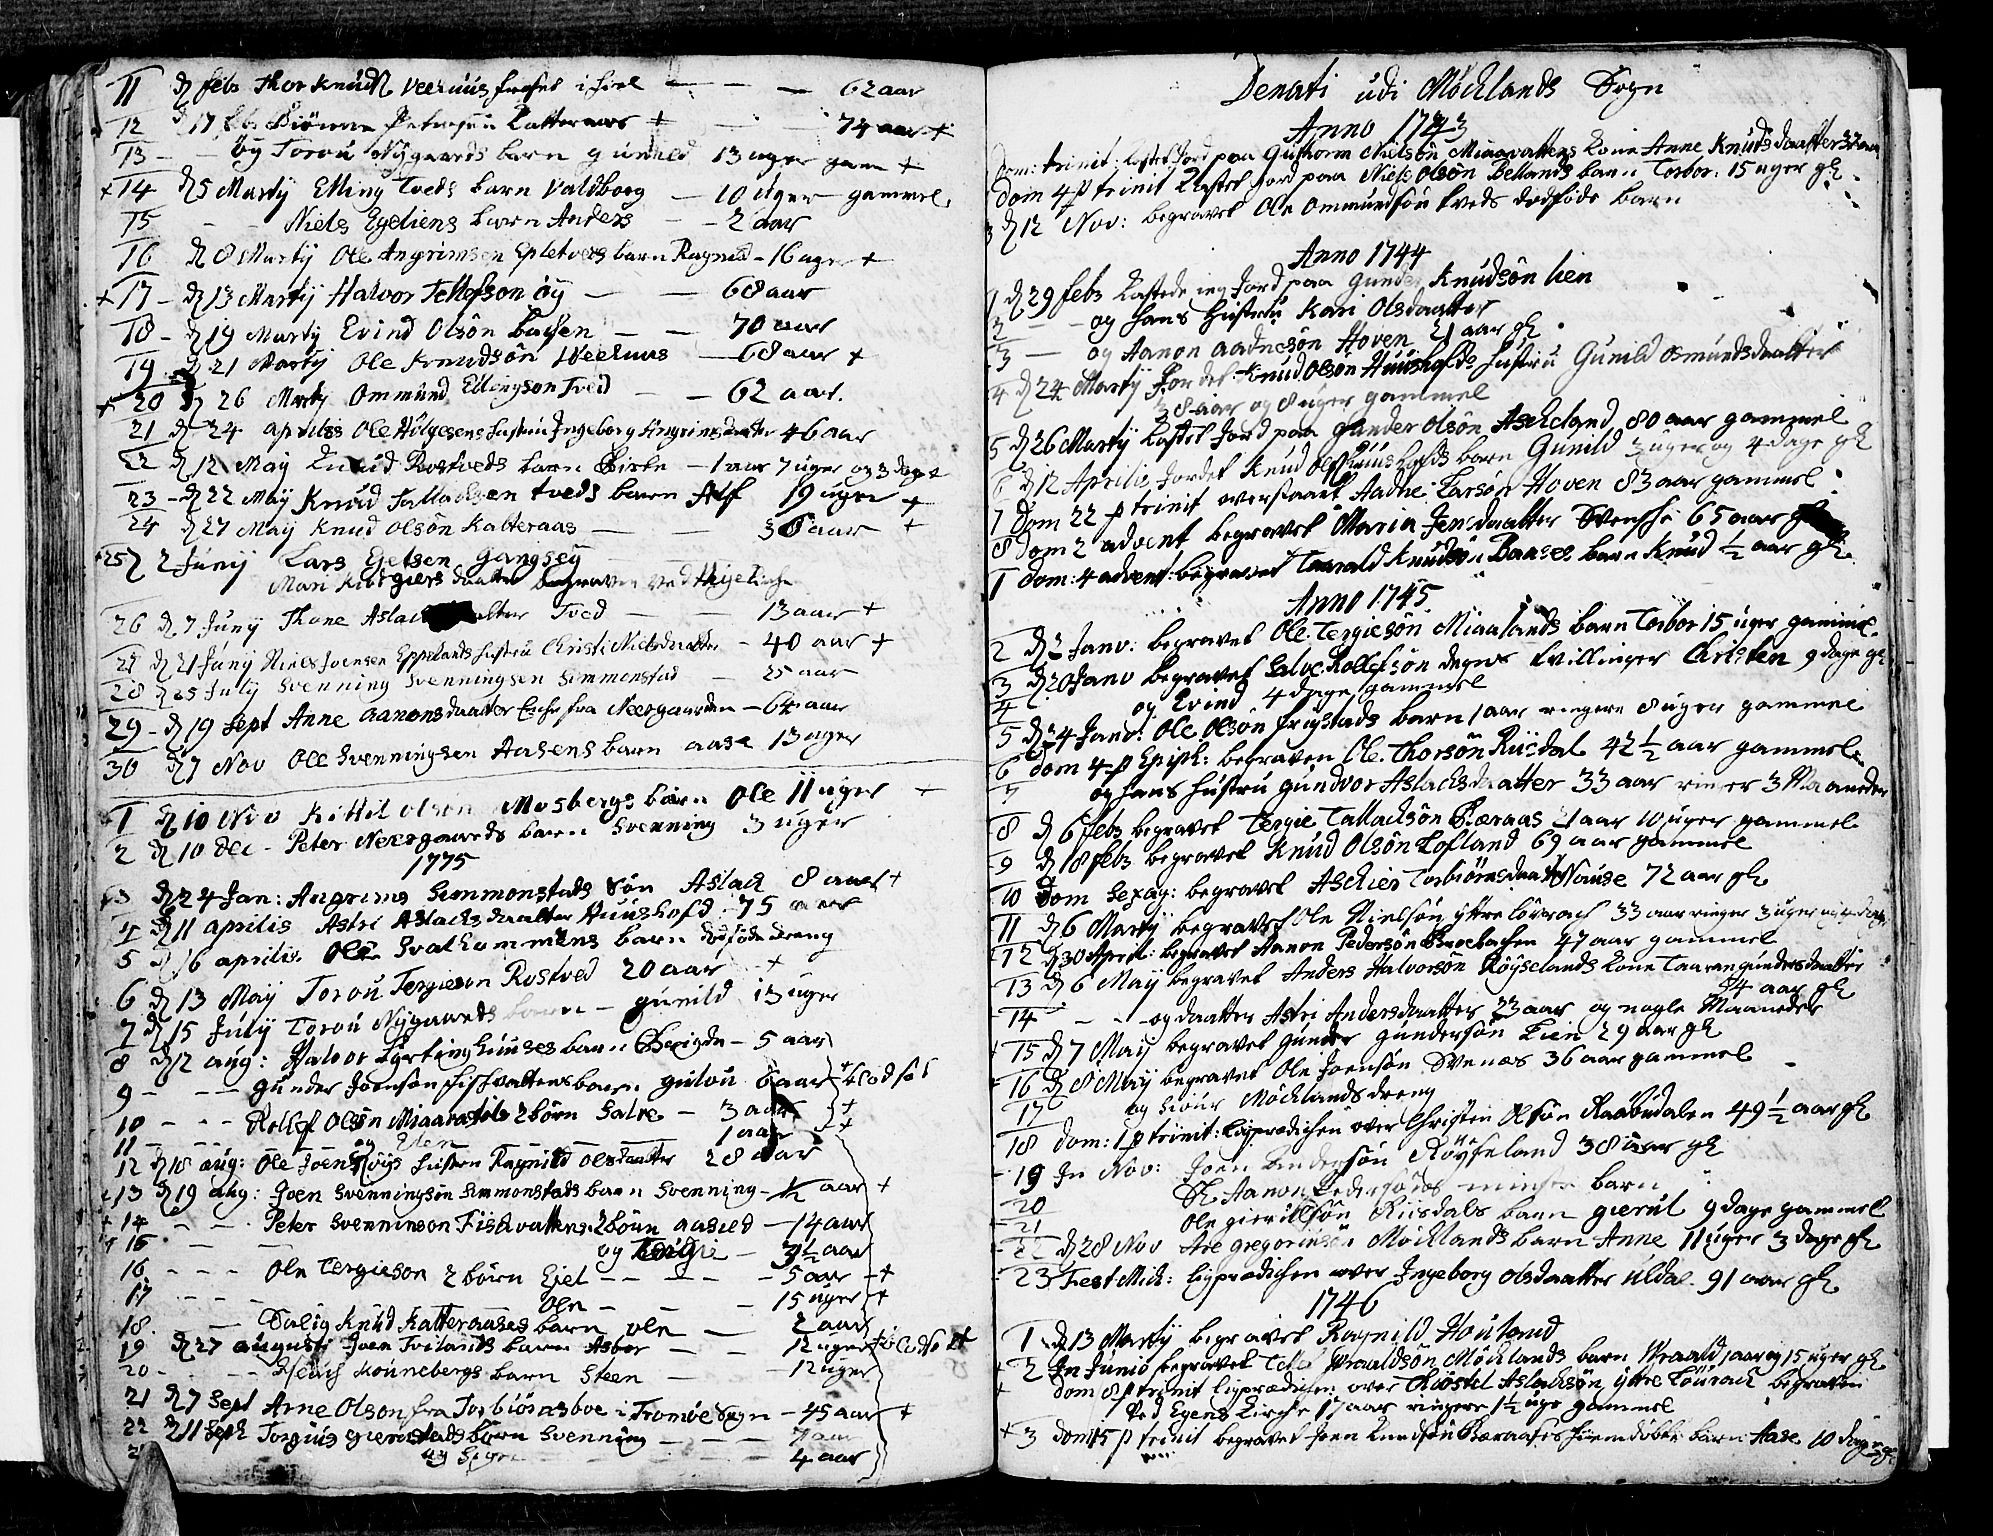 11 d febr Thor Knuds Veehuus 62 aar
12 d 17 febr Biörn Petersen Katteraas + 74 aar +
13 - - og Torou Nygaards barn gunild 13 uger gam +
+ 14 d 5 Martij Elling Tveds barn Valdborg - 10 Uger gammel
15 - - Niels Egeliens barn Anders - 2 aar
16 d 8 Martij Ole Angrimsen Epletveds barn Ragnild - 16 uger +
+ 17 - d 13 Martij Halvor Tellefson öy - - 68 aar
18 - d 19 Martij Evind Olsön bachen - - 70 aar
19 d 21 Martij Ole Knudsön Veehuus - 68 aar +
+ 20 d 26 Martij Ommund Ellingson Tved - - 62 aar.
21 d 24 aprilis Ole Holgesens hustru Ingeborg Angrimsdaatter 46 aar
22 d 12 Maij Knud Rostveds barn Birte - 1 aar 7 uger og 3 dage +
23 - d 22 Maij Knud Tallachsen tveds barn Alf 19 uger +
24 d 27 Maij Knud Olsön Katteraas - - 36 aar +
+ 25 d 2 Junij Lars Gjelsen Gangsey
Mari daatter begraven ved
26 d 7 Junij Thone Aslach atter Tved - - 13 aar +
27 d 21 Junij Niels Joensen Eppelands hustru Christi Nielsdaatter - 40 aar +
28 d 25 Julij Svenning Svenningsen Simmonstad - 25 aar
29 - d 19 Sept Anne Aanonsdaatter Enche fra Neergaarden - 64 aar
30 d 7 Nov Ole Svenningsen Aasens barn aase 13 uger
1 d 10 Nov Kittil Olson Mosbergs barn Ole 11 uger +
2 d 10 dec - Peter Neergaards barn Svenning 3 uger
1775
3 d 24 Jan: Angrims Simmonstads Sön Aslach 8 aar +
4 d 11 aprilis Astri Aslachsdaatter Huushofd 75 aar
5 d 16 aprilis Ole Svalhommens barn dödföde dreng
6 d 13 Maij Torou Tergieson Rostved 20 aar +
7 d 15 Julij Torou Nygaards barn - gunild 13 uger
8 d 12 aug: Halvor Lyrtinghuuses barn - 5 aar
9 - - - gunder Joensön fischvattens barn 6 aar + blodsot
10 - - - Rollef Olsön Miaavatns 2 börn Salve - 3 aar +
11 - og - - - 1 aar +
12 d 18 aug: Ole Joens öys hustru Ragnild Olsdaatter 28 aar
+ 13 d 19 aug: Joen Svenningsön Simmonstads barn Svenning - ½ aar +
+ 14 - - - Peter Svenninson Fischvattens 2 börn aasild - 14 aar
+ 15 - - - og Tergie - 3½ aar
16 - - - Ole Tergieson 2 börn Giel - - - 5 aar - +
17 - - - Ole - - 15 uger +
18. - - Salig Knud Katteraases barn ole - 2 aar
19 d 27 augusti Joen Froilands barn Asbor - - 12 uger
20 - - - Mönnebergs barn Steen - - 12 uger
21 d 7 Sept Arne Olson fra Torbiörnsboe i Tromöe Sogn - 45 aar +
22 d 11 Sept Torgius gierstads börn Svenning - - - 7 aar
og - - - 4 aar
Denati udi Möchlands Sogn
Anno 1743
Dom: trinit: kastet Jord paa Guttorm Nielsön Miaavattens kone Anne Knudsdaatter 32 aar
Dom 4 p trinit kastet Jord paa Niels Olsön Bellands barn Torbor: 15 uger gl
3 d 12 Nov: begravet Ole Ommundsön tveds dödföde barn
Anno 1744
1 d 29 febr kastede ieg Jord paa Gunder Knudsön lien
2 - - og hans hustru Kari Olsdaatter
3 - og Aanon Aadnesön Hoven 21 aar gl
4 d 24 Martij Jordet Knud Olsön Huushofds hustru Gunild Osmundsdaatter
38 aar og 8 uger gammel
5 d 26 Martij kastet Jord paa gunder Olsön Ascheland 80 aar gammel
6 d 12 Aprilis Jordet Knud Ols Huushofds barn Gunild 3 uger og 4 dage gl
7 Dom 22 p trinit overstaaet Aadne Larsön Hoven 83 aar gammel
8 dom 2 advent begravet Maria Jensdaatter Svensche 65 aar
1 dom: 4 advent: begravet Taarald Knudsön Baases barn Knud ½ aar gl
Anno 1745
2 d 2 Janv: begravet Ole Tergiesön Miaalands barn Torbor 15 uger gammel
3 d 20 Janv begravet Salve Rollefsön degns tvillinger Christen 9 dage gl
4 og Evind 4 dage gammel
5 d 24 Janv: Ole Olsön frigstads barn 1 aar ringere 8 uger gammel
6 dom 4 p Epiph: begraven Ole Thorsön Riisdal 42 ½ aar gammel
7 og hans hustru gundvor Aslachsdaatter 33 aar ringer 3 Maaneder
8 d 6 febr begravet Tergie Tallachsön Bæraas 21 aar 10 uger gammel
9 d 18 febr begravet Knud Olsön Lofland 69 aar gammel
10 Dom Sexag: begravet Aschier Torbiörnsdaatter Nause 72 aar gl
11 d 6 Martij begravet Ole Nielsön ÿttre lörrach 33 aar ringer 3 uger
12 d 30 April: begravet Aanon Pedersön Broebachen 47 aar gammel
13 d 6 Maij begravet Anders Halvorsön Röyselands kone Taaran gundersdaatter
54 aar gl
14 - - - og daatter Astri Andersdaatter 23 aar og nogle Maaneder
15 d 7 Maij begravet gunder gundersön Lien 29 aar gl
16 d 8 Maij begravet Ole Joensön Svenæs 36 aar gammel
17 og Siöur Möchlands dreng
18 dom: 1 p trinit: ligprædichen over Christen Olsön Raabudalen 49 ½ aar gl
19 In Nov: Joen Andersön Röyseland 38 aar gl
20 Sl. Aanon Pedersöns minste barn
21 Ole gierulfsön Riisdals barn gierul 9 dage gammel
22 d 28 Nov Are gregoriusen Möchlands barn Anne 11 uger 3 dage gl
23 Fest Mich: ligprædichen over Ingeborg Olsdaatter Uldal 91 aar gl
1746
1 d 13 Martij begravet Ragnild Houland
+ 2 In Junio begravet Tellef Wraaldsön Möchlands barn Wraald 1 aar og 15 uger gl
+ dom 8 p trinit ligprædichen over Thiöstel Aslachsön ÿttre Lourach begraven
ved Egens Kirche 17 aar ringere 1½ uge gammel
+ 3 dom 15 p trinit begravet Joen Knudsön Bæraases hiemdöbte barn Aase 10 dage gl